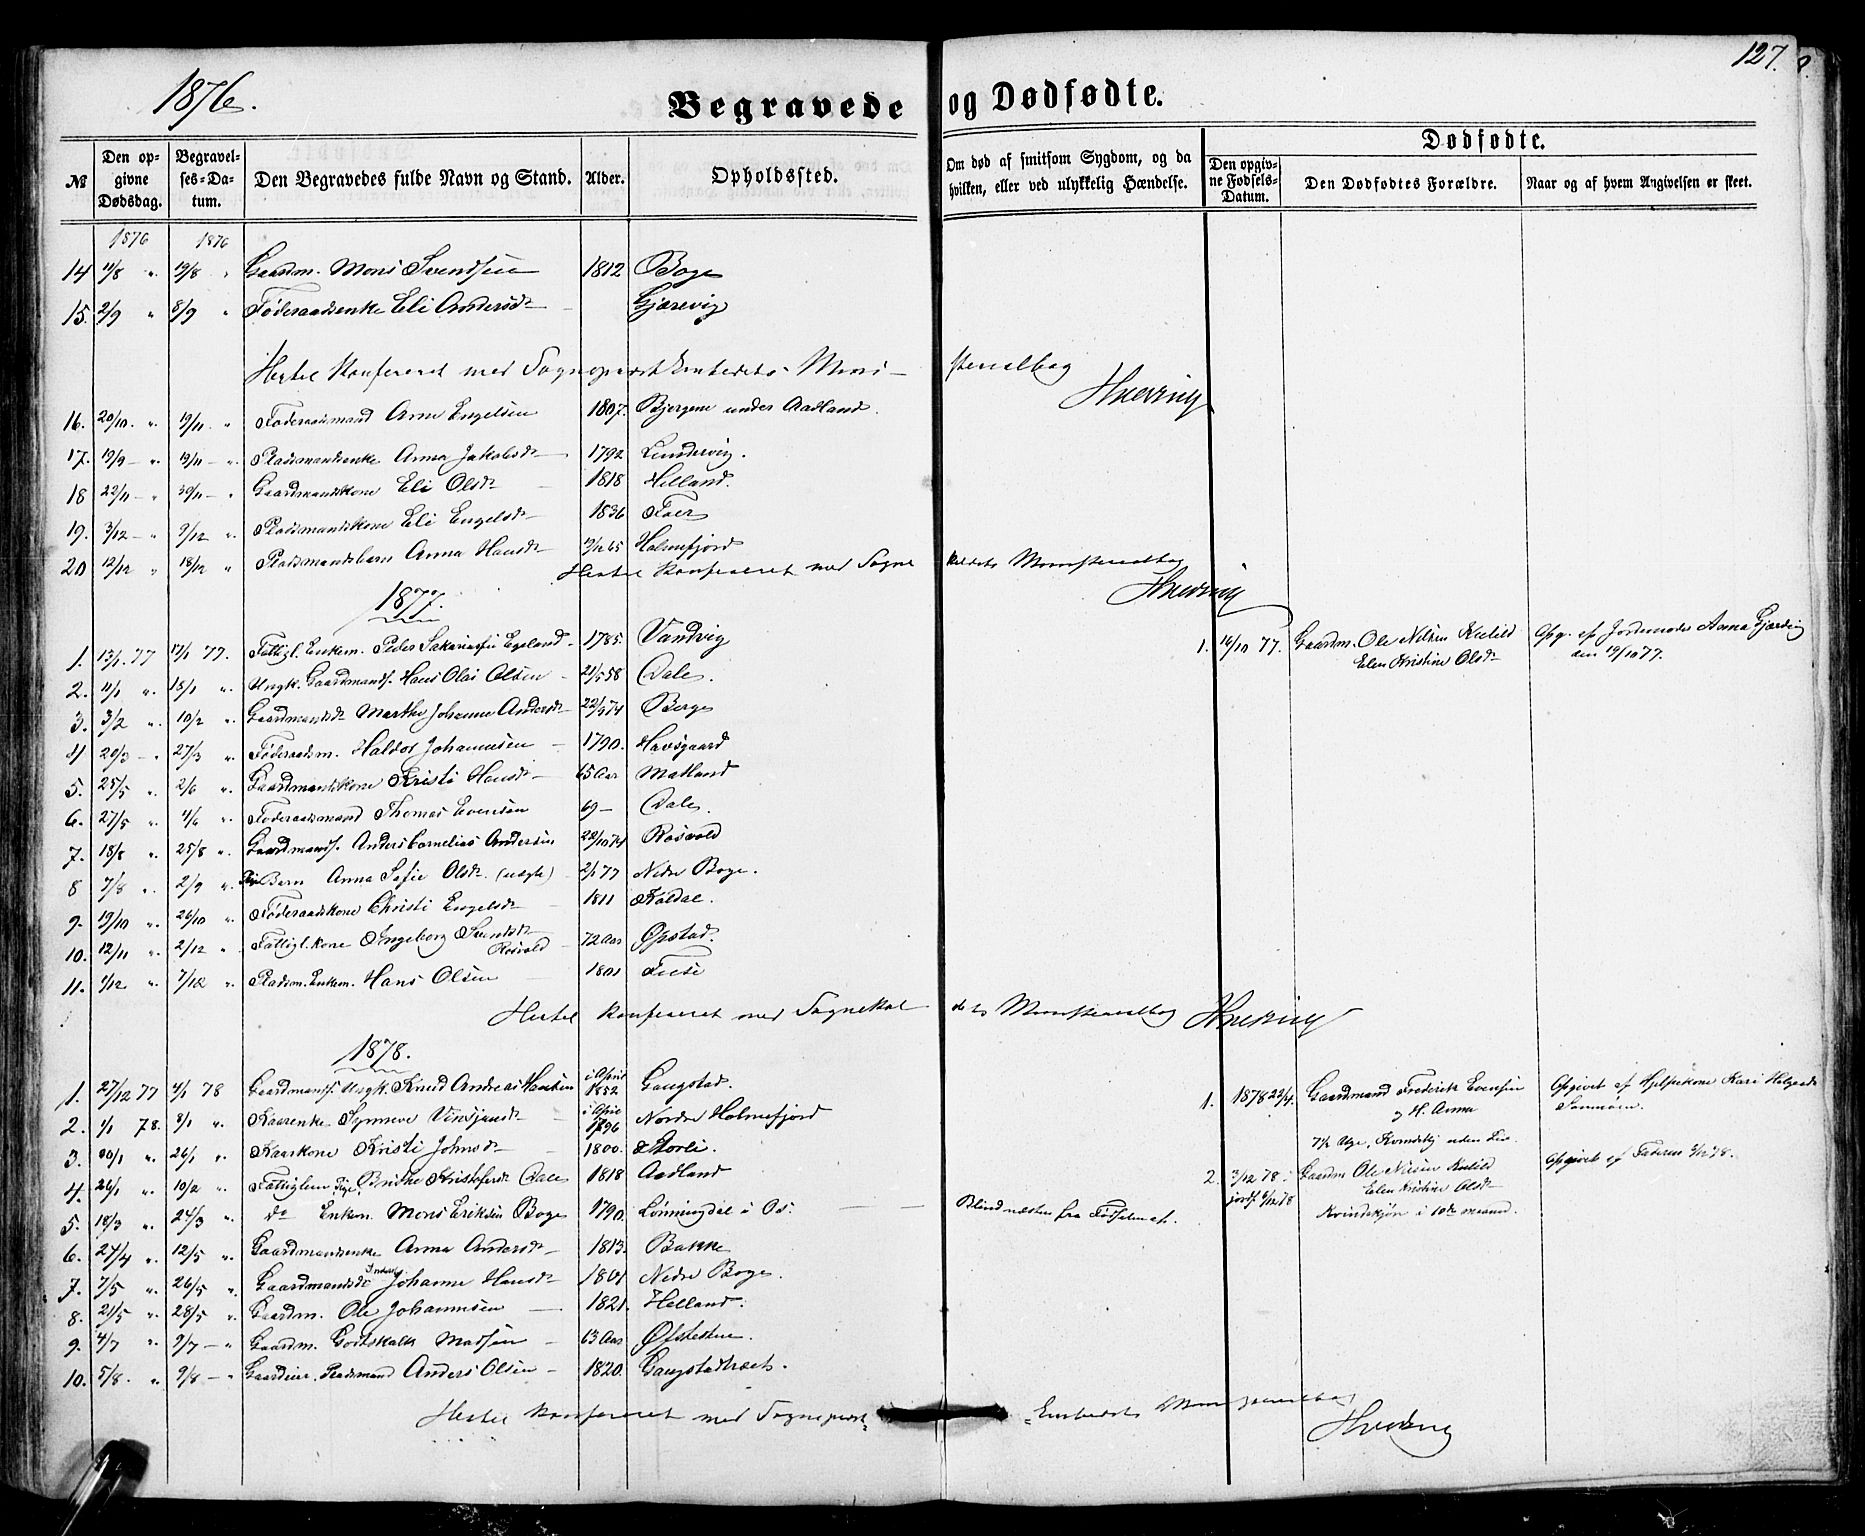 127.
1876.
Begravede og Dødfødte.
№ Den opgivne Dødsdag. Begravelses-Datum. Den Begravedes fulde Navn og Stand. Alder. Opholdssted. Om død af smitsom Sygdom, og da hvilken, eller ved ulykkelig Hændelse. Dødfødte.
Den opgivne Fødsels-Datum. Den Dødfødtes Forældre. Naar og af hvem Angivelsen er skeet.
1876 1876
14 11/8 " 19/8 " Gaardm. Mons Svendsen 1812 Boge
15. 2/9 " 8/9 " Føderaadsenke Eli Andersdr – Gjærevig
Hertil konfereret med Sogneprestembedets Ministerialbog
16. 20/10 " 9/11 " Føderaadsmand Arne Engelsen 1807. Bjergene under Aadland.
17. 19/9 – " 19/11 – " Pladsmandsenke Anna Jakobsdr 1792 Lundervig.
18 22/11 – " 30/11 – " Gaardmandskone Eli Olsdr – 1818 Helland.
19. 3/12 – " 9/12 " Pladsmandskone Eli Engelsdr – 1836 Foer
20 12/12 " 18/12 " Pladsmandsbarn Anna Hansdr 9/12 65 Holmefjord
Hertil konfereret med Sognekaldets Ministerialbog
1877.
1. 13/1 77 17/1 77. Fattigl. Enkem. Peder Sakariassen Egeland 1785. Vandvig 1. 16/10 77. Gaardm. Ole Nilsen Kvilld Opg. af Jordemoder Anna Gjærvig
Elen Kristine Olsdr den 19/10 77.
2. 11/1 " 18/1 " Ungk. Gaardmands. Hans Olai Olsen – 21/5 58 Dale.
3. 3/2 " 10/2 " Gaardmandsdr Marthe Johanne Andersdr 22/9 74 Berge
4 20/3 – " 27/3 " Føderaadsm. Haldor Johannesen – 1790. Havsgaard
5. 25/5 " 2/6 " Gaardmandskone Kristi Hansdr – 65 Aar Matland
6. 27/5 " 4/6 " Føderaadsmand Thomas Evensen 69 – Dale.
7. 18/8 " 25/8 " Gaardmands. Anders Cornelius Andersen 22/10 74 Røsvold
8 7/8 " 2/9 " Barn Anna Sofie Olsdr (uægte) – 2/6 77 Nedre Boge.
9. 19/10 " 26/10 " Føderaadskone Christi Engelsdr – 1811 Koldal.
10. 12/11 " 2/12 " Fattigl. kone Ingeborg Svendsdr Røsvold – 72 Aar Øpstad.
11. 1/12 " 7/12 " Pladsm. Enkem. Hans Olsen – 1801 Tuse
Hertil konfereret med Sognekaldets Ministerialbog
1878.
1. 27/12 77 4/1 78 Gaardmands. Ungk. Knud Andreas Hansen i April 1852 Gaugstad. 1. 1878 23/4. Gaardmand Frederik Evensen Opgivet af Hjelpekone Kari Holgersd
og H. Anna
2. 1/1 78. 8/1 " Kaarenke Synneve Vindjansdr i April 1796 Nordre Holmefjord
7½ Uge, Kvindekj. uden Liv.
3. 20/1 " 26/1 " Kaarkone Kristi Johnsdr – 1800. Storli.
4. 24/1 " 10/2 " Fattiglem Pige Brithe Kristofersdr Dale 1818 Aadland 2. 3/12 78. Gaardm Ole Nilsen Kvilld Opgivet af Faderen 9/12 78.
jordf. 9/12 78 Elen Kristine Olsdr
5. 18/3 " 24/3 " do Enkem. Mons Eriksen Boge 1790. Lønningdal i Os. – – Blind næsten fra Fødselen af. Kvindekjøn i 10de maaned.
6. 27/4 " 12/5 " Gaardmandsenke Anna Andersdr – 1813. Bakke
7. 7/5 " 26/5 " Gaardmandsdr Johanne Hansdr – 1801 Nedre Boge.
8. 21/5 " 28/5 " Gaardm. Ole Johannesen – 1821. Helland.
9. 4/7 " 9/7 – " Gaardm. Godtskalk Madsen – 63 Aar Øfsteteun.
10. 5/8. " 9/8 – " Gaardeier. Pladsmand Anders Olsen – 1820. Gaugstadtræet.
Hertil konfereret med Sogneprest-Embedets Ministerialbog